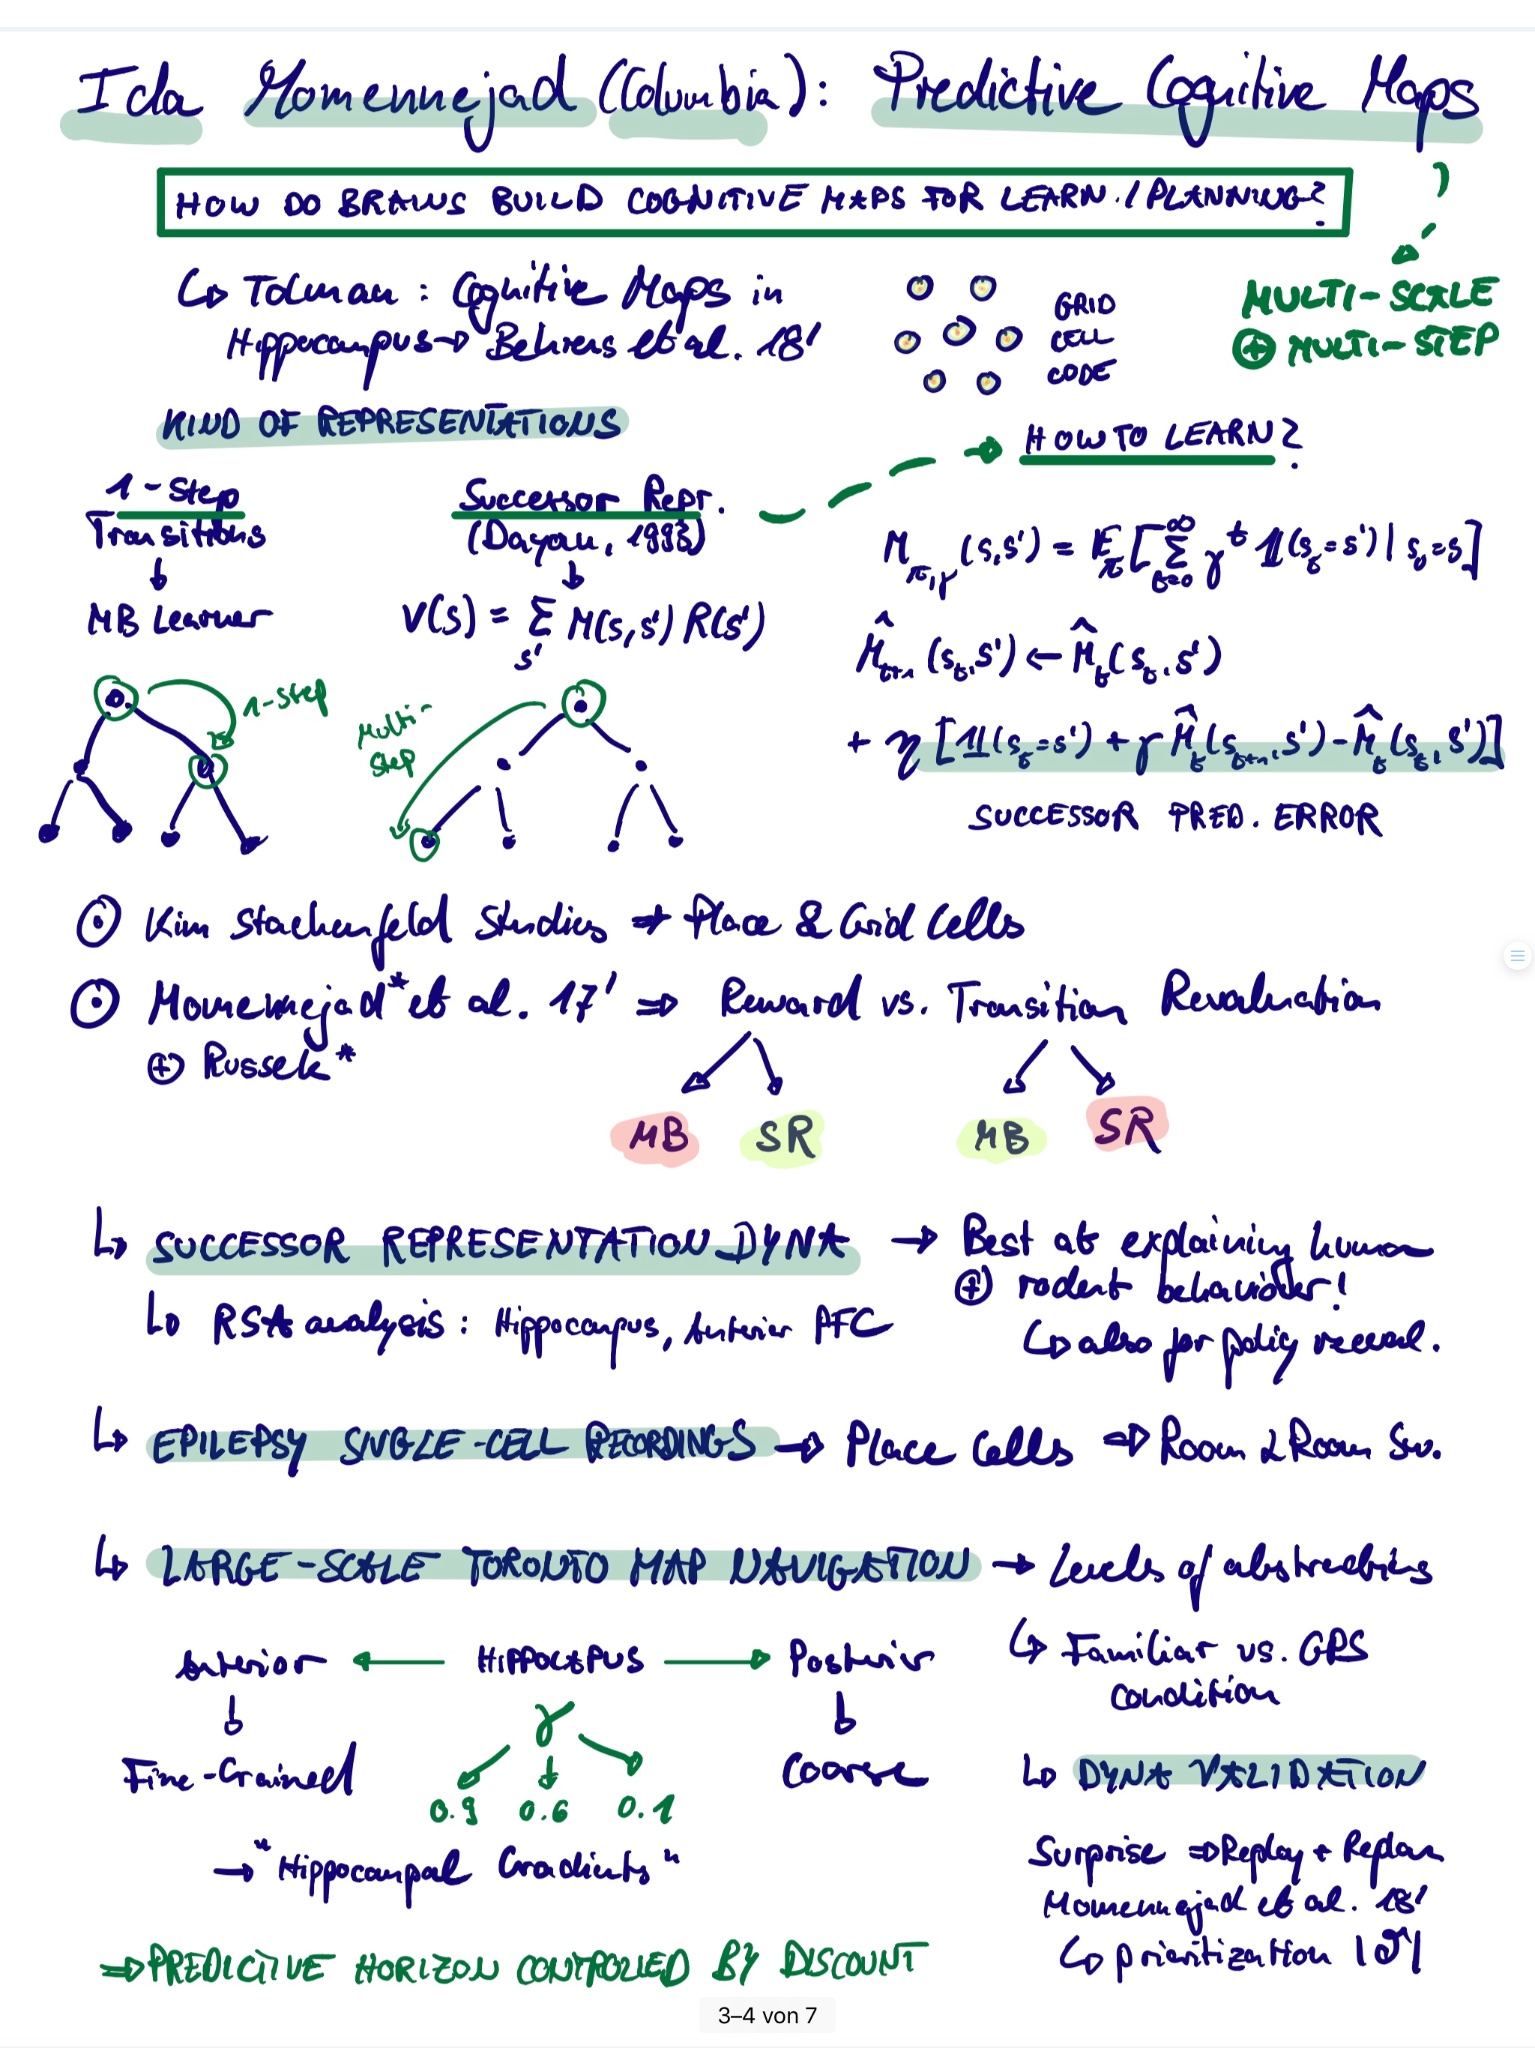 Ida Momennejad (Columbia): Predictive Cognitive Maps
HOW DO BRAINS BUILD COGNITIVE MAPS FOR LEARN./PLANNING?
↳ Tolman: Cognitive Maps in
Hippocampus → Behrens et al. 18'
GRID
CELL
CODE
MULTI-SCALE
⊕ MULTI-STEP
KIND OF REPRESENTATIONS
HOW TO LEARN?
1-Step
Transitions
↓
MB Learner
Successor Repr.
(Dayan, 1993)
↓
V(s) = Σ_{s'} M(s,s') R(s')
M_{π,γ}(s,s') = E_π[Σ_{t=0}^∞ γ^t 𝟙(s_t=s') | s_0=s]
M̂_{t+1}(s_t,s') ← M̂_t(s_t,s')
+ η [𝟙(s_t=s') + γ M̂_t(s_{t+1},s') - M̂_t(s_t,s')]
SUCCESSOR PRED. ERROR
1-Step
Multi-
Step
⊙ Kim Stachenfeld Studies ⇒ Place & Grid Cells
⊙ Momennejad* et al. 17' ⇒ Reward vs. Transition Revaluation
⊕ Russek*
MB SR MB SR
↳ SUCCESSOR REPRESENTATION DYNA → Best at explaining human
⊕ rodent behaviour!
↳ RSA analysis: Hippocampus, Anterior PFC
↳ also for policy reeval.
↳ EPILEPSY SINGLE-CELL RECORDINGS → Place Cells ⇒ Room 2 Room Sw.
↳ LARGE-SCALE TORONTO MAP NAVIGATION → Levels of abstractions
↳ Familiar vs. GPS
condition
Anterior ← HIPPOCAPUS → Posterior
↓ γ ↓
Fine-Grained
0.9 0.6 0.1
Coarse
→ "Hippocampal Gradients"
⇒ PREDICTIVE HORIZON CONTROLLED BY DISCOUNT
↳ DYNA VALIDATION
Surprise ⇒ Replay + Replan
Momennejad et al. 18'
↳ prioritization |δ^M|
3–4 von 7